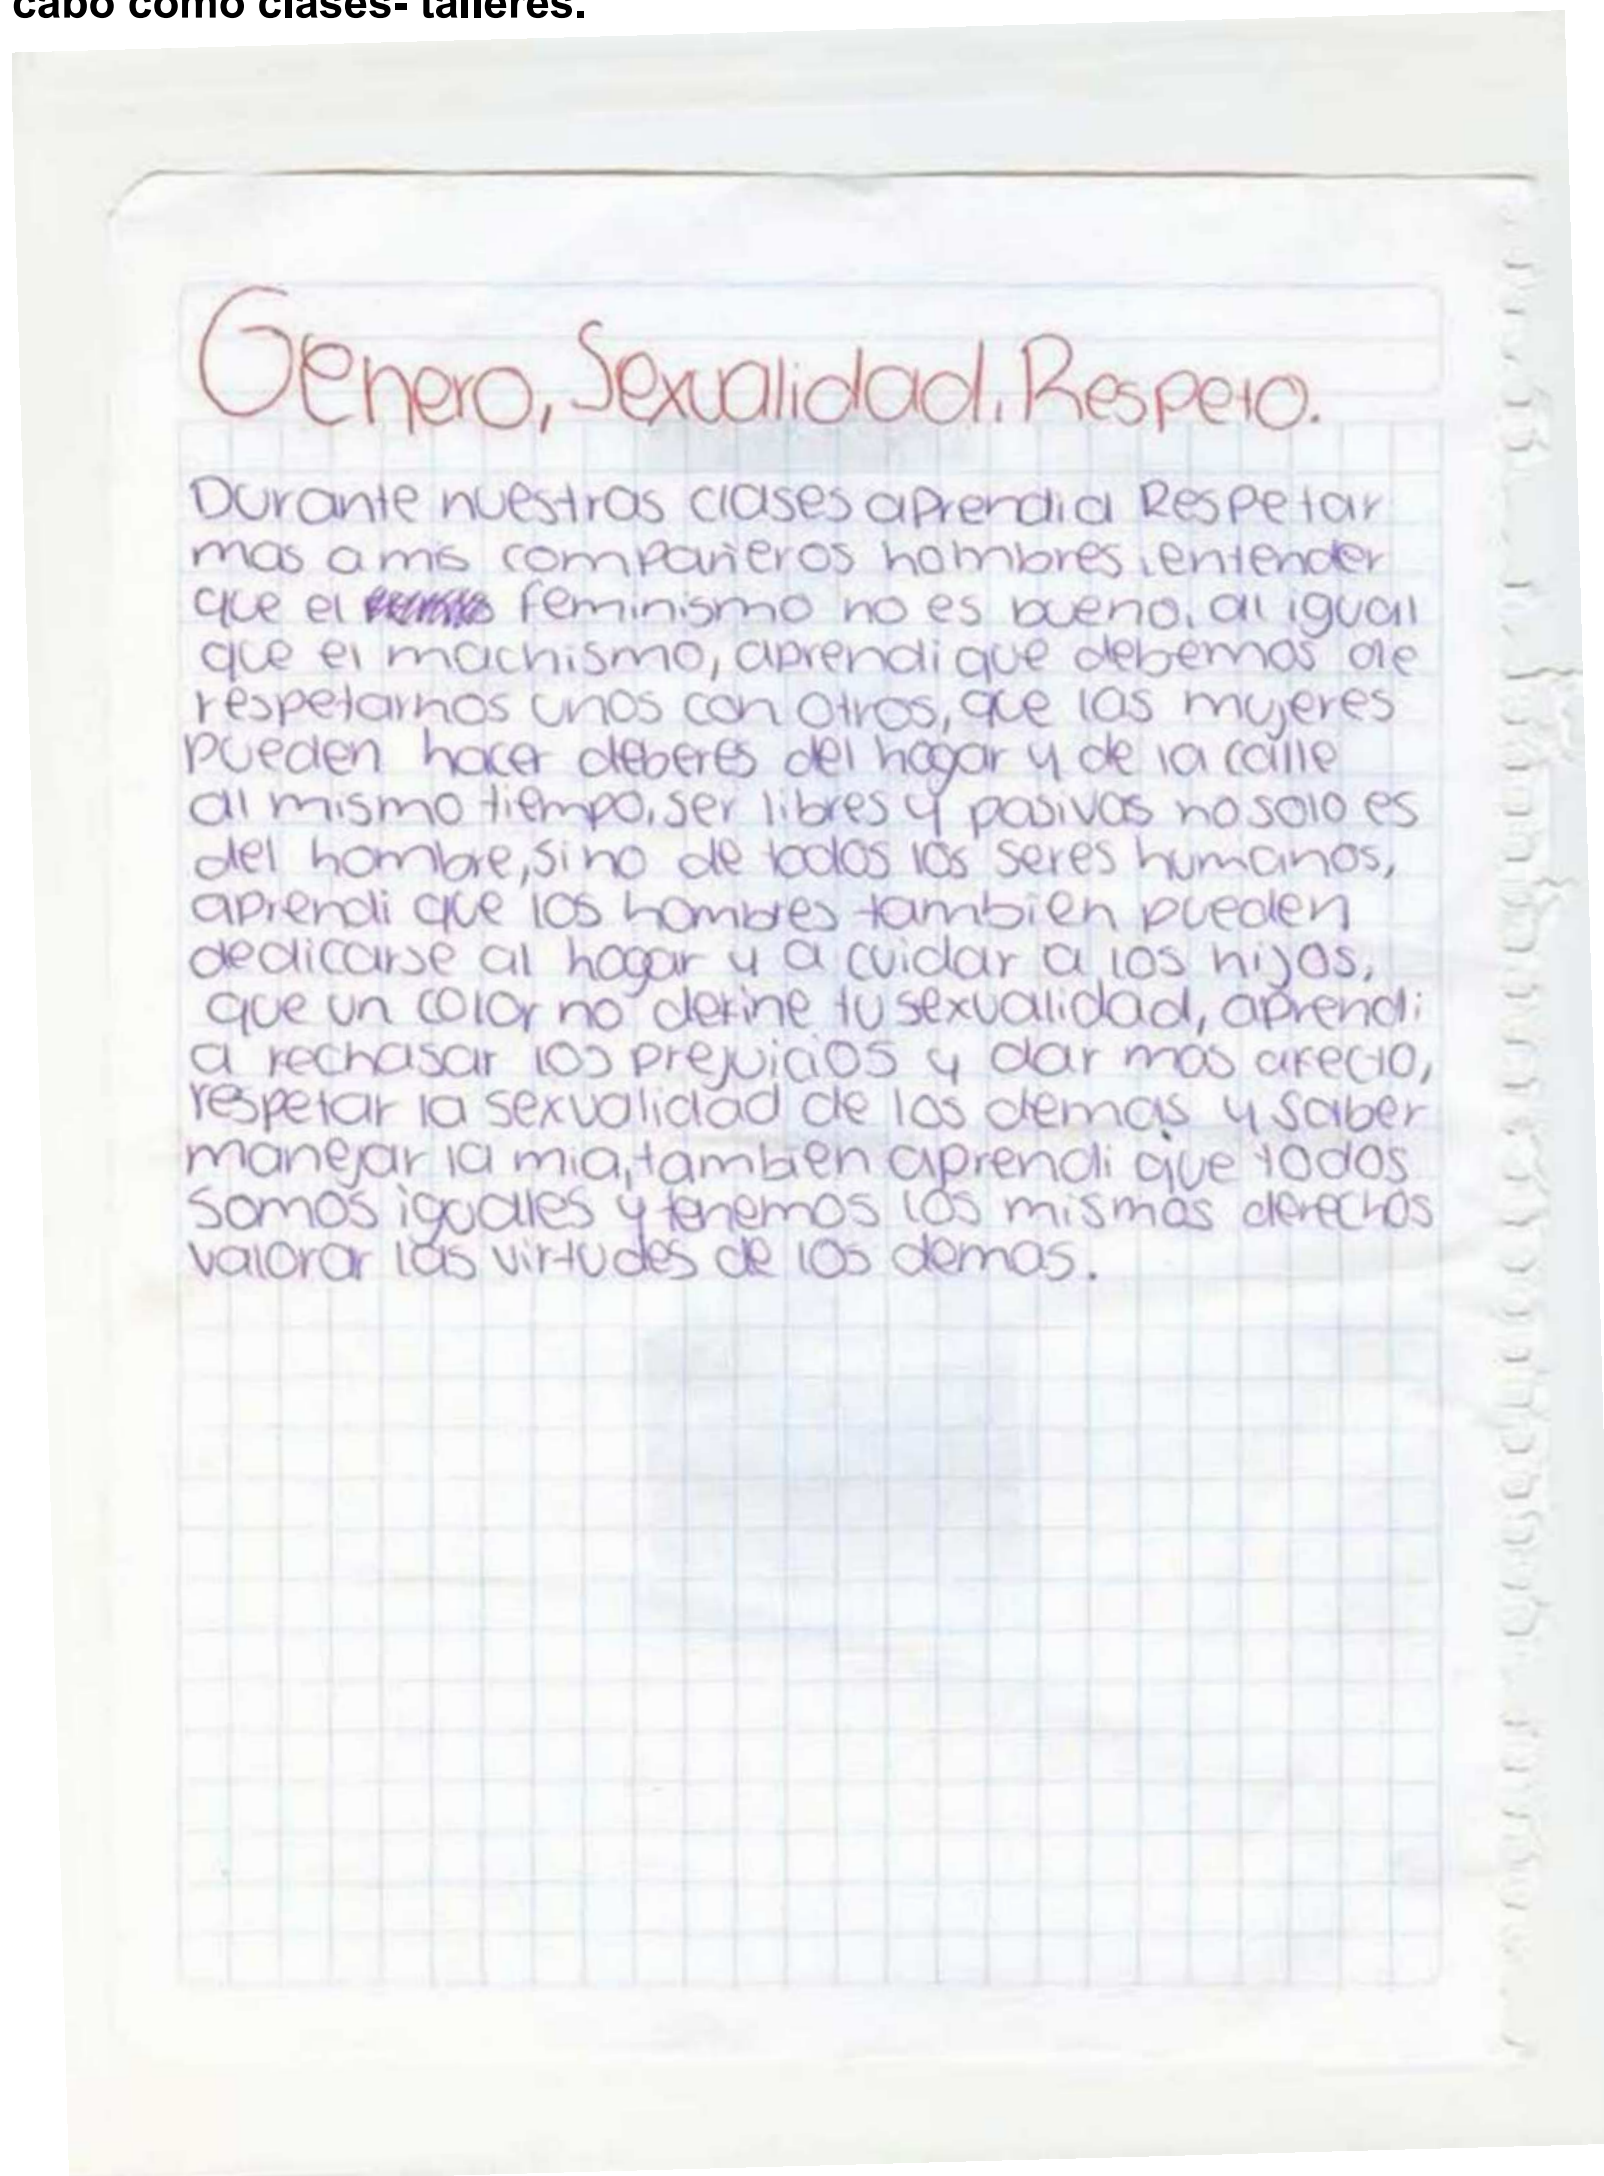 cabo como clases- talleres.
Genero, Sexualidad, Respeto.
Durante nuestras clases aprendi a Respetar
mas a mis compañeros hombres, entender
que el feminismo no es bueno, al igual
que el machismo, aprendi que debemos de
respetarnos unos con otros, que las mujeres
pueden hacer deberes del hogar y de la calle
al mismo tiempo, ser libres y pasivas no solo es
del hombre, sino de todos los seres humanos,
aprendi que los hombres tambien pueden
dedicarse al hogar y a cuidar a los hijos,
que un color no define tu sexualidad, aprendi
a rechasar los prejuicios y dar mas afecto,
respetar la sexualidad de los demas y saber
manejar la mia, tambien aprendi que todos
somos iguales y tenemos los mismos derechos
valorar las virtudes de los demas.